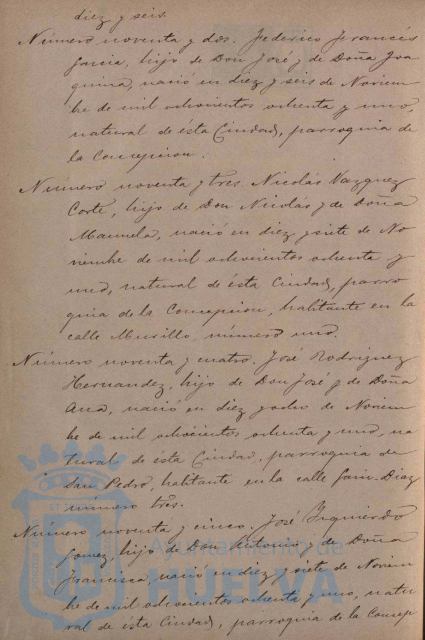 diez y seis.
Número noventa y dos. Federico Francés
Garcia, hijo de Don José y de Doña Joa
quina, nació en diez y seis de Noviem
bre de mil ochocientos ochenta y uno,
natural de ésta Ciudad, parroquia de
la Concepcion.
Número noventa y tres. Nicolás Vazquez
Corte, hijo de Don Nicolás y de Doña
Manuela, nació en diez y siete de No
viembre de mil ochocientos ochenta y
uno, natural de ésta Ciudad, parro
quia de la Concepcion, habitante en la
calle Murillo, número uno.
Número noventa y cuatro. José Rodriguez
Hernandez, hijo de Don José y de Doña
Ana, nació en diez y ocho de Noviem
bre de mil ochocientos ochenta y uno, na
tural de ésta Ciudad, parroquia de
San Pedro, habitante en la calle Diaz
número tres.
Número noventa y cinco. José Izquierdo
Gomez, hijo de Don Antonio y de Doña
Francisca, nació en diez y siete de Noviem
bre de mil ochocientos ochenta y uno, natu
ral de ésta Ciudad, parroquia de la Concep
Ayuntamiento de
HUELVA